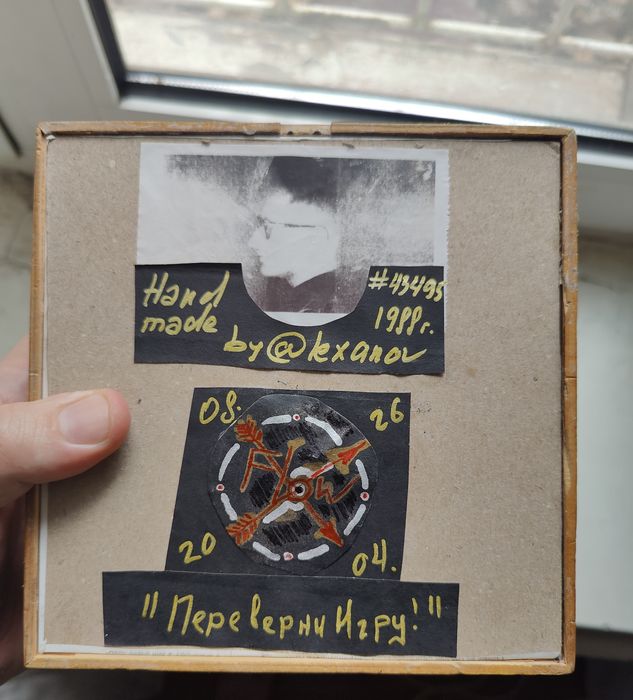 Hand
made
#43495
1988г.
by@lexanov
08. 26
FLOW
20 04.
"Переверни Игру!"